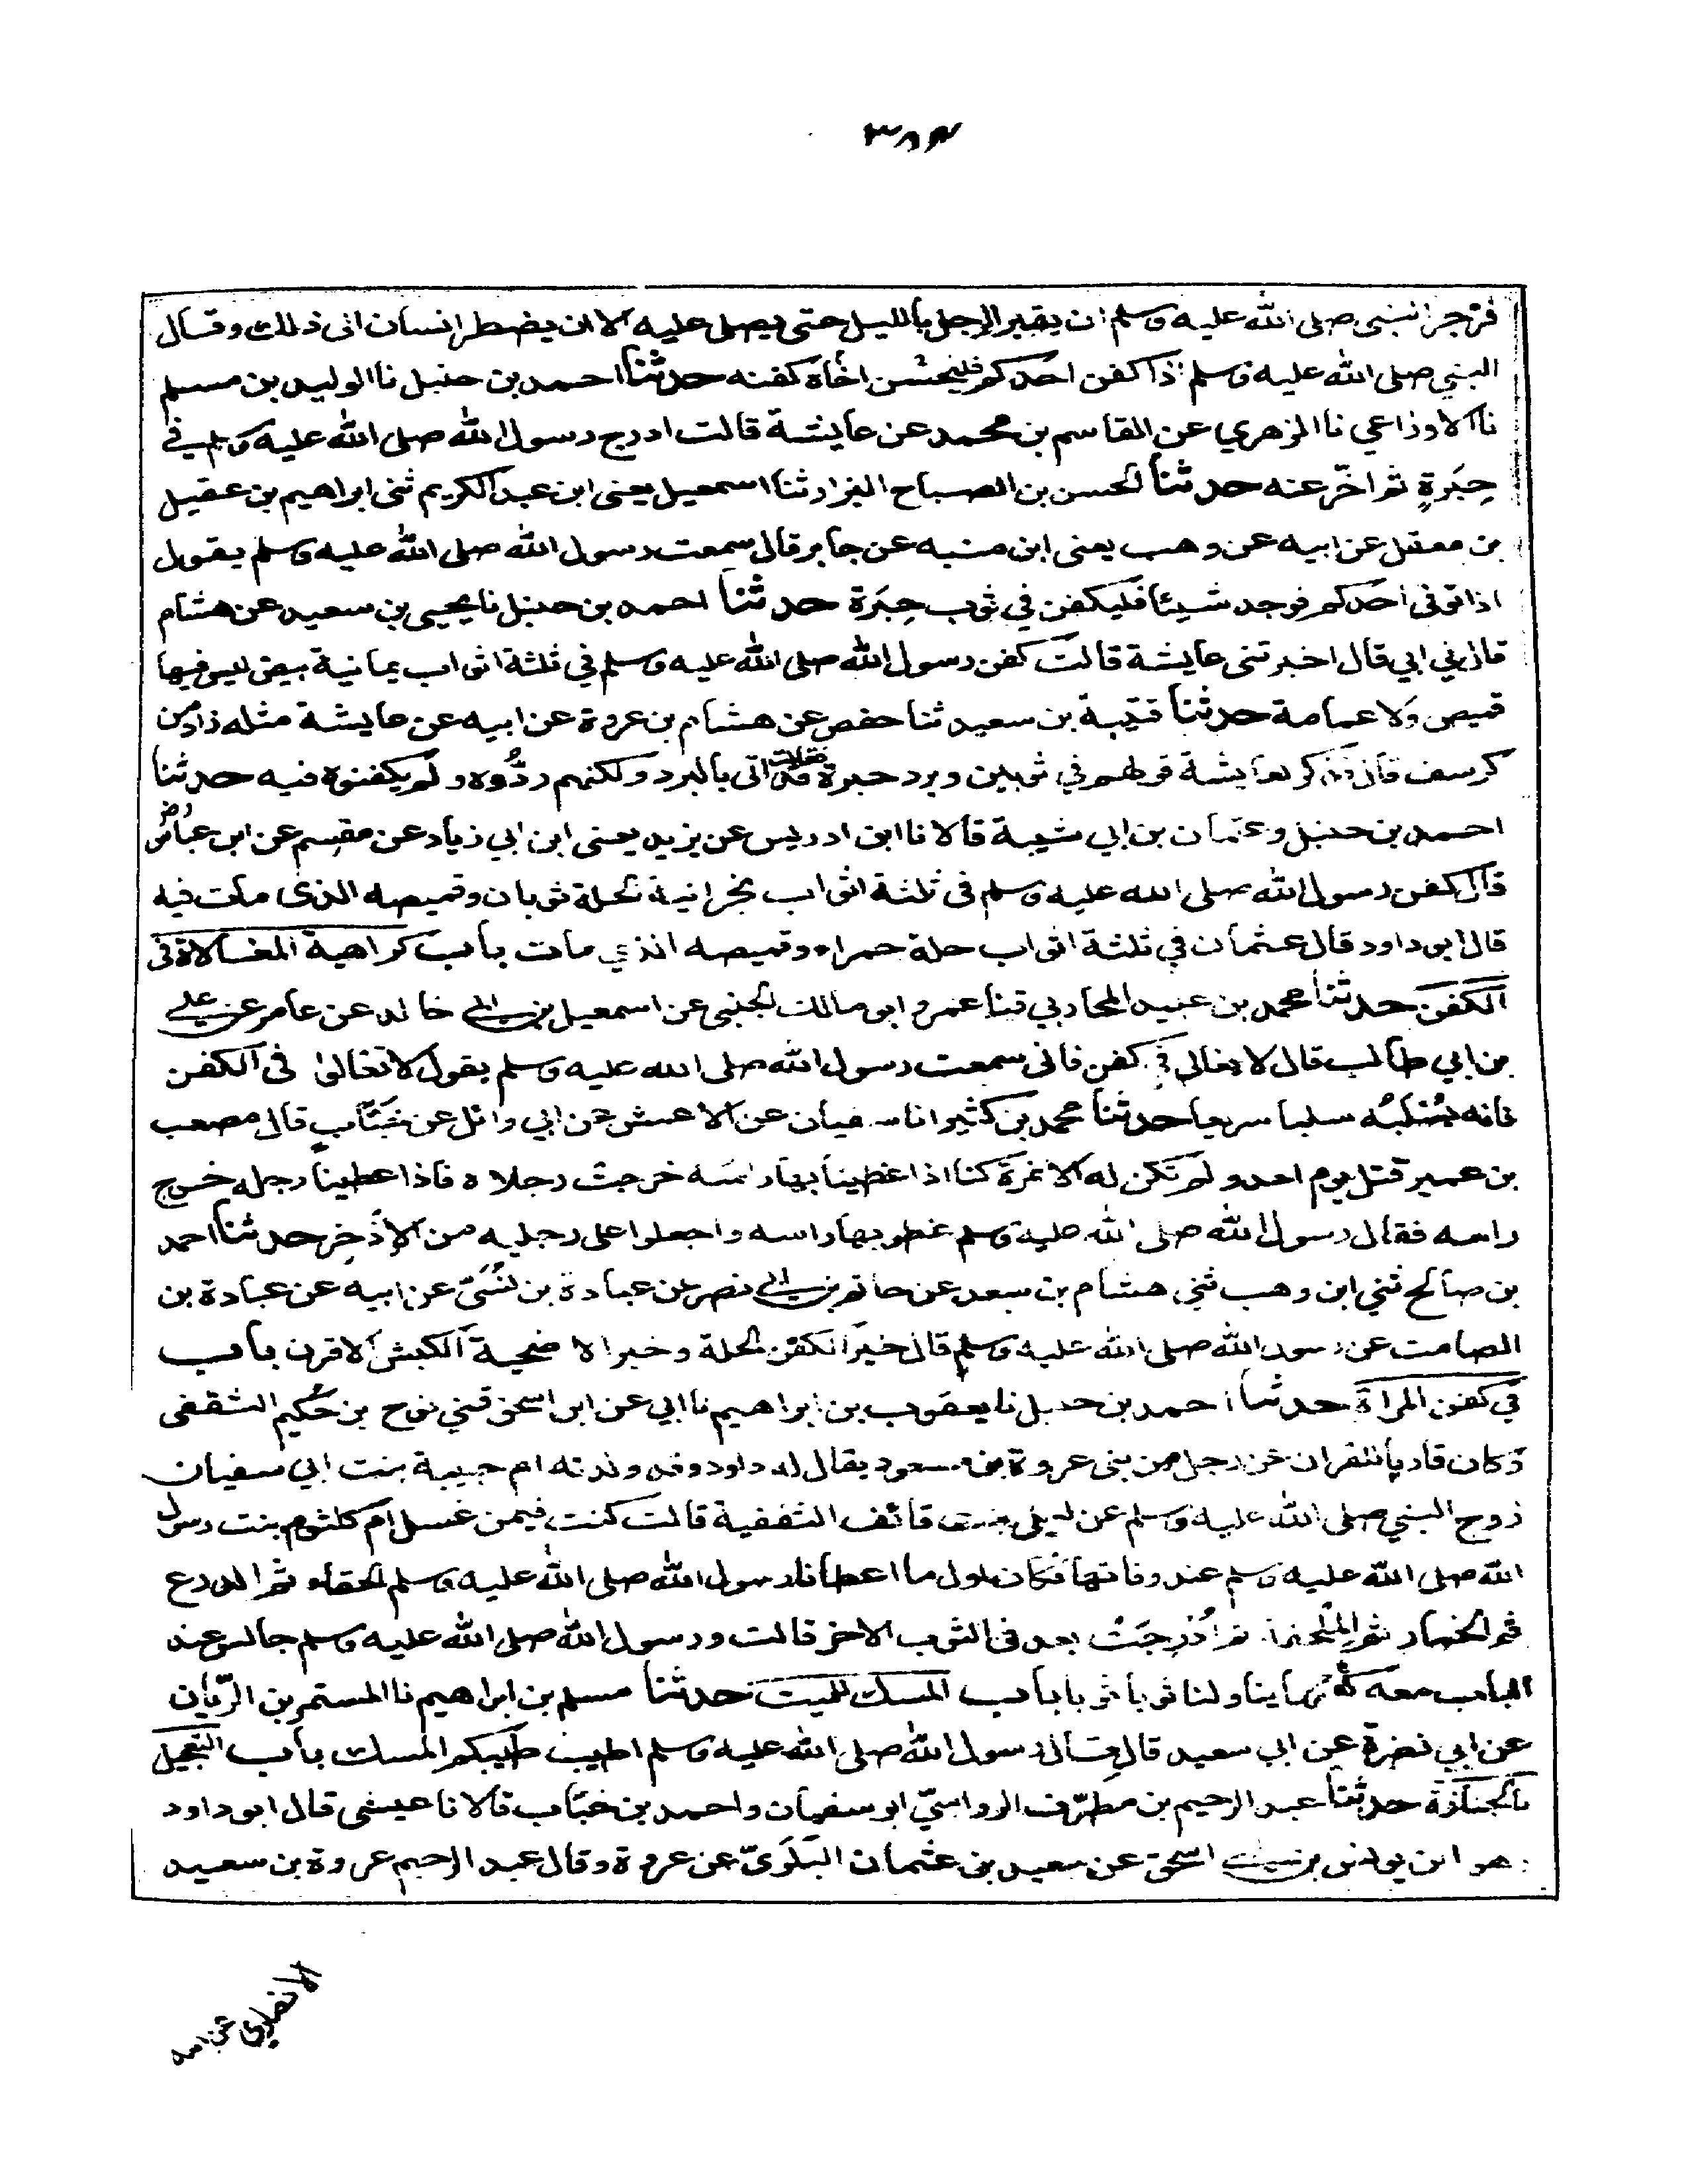 ٣٨٤
فزجر النبي صلى الله عليه وسلم ان يقبر الرجل بالليل حتى يصلى عليه الا ان يضطر انسان الى ذلك وقال
النبي صلى الله عليه وسلم اذا كفن احدكم فليحسن اخاه كفنه حدثنا احمد بن حنبل نا الوليد بن مسلم
نا الاوزاعي نا الزهري عن القاسم بن محمد عن عايشة قالت ادرج رسول الله صلى الله عليه وسلم في
حِبَرةٍ ثم اخّر عنه حدثنا الحسن بن الصباح البزار ثنا اسمعيل يعنى ابن عبد الكريم ثنى ابراهيم بن عقيل
بن معقل عن ابيه عن وهب يعنى ابن منبه عن جابر قال سمعت رسول الله صلى الله عليه وسلم يقول
اذا توفى احدكم فوجد شيئا فليكفن في ثوب حِبَرة حدثنا احمد بن حنبل نا يحيى بن سعيد عن هشام
قال ني ابي قال اخبرتنى عايشة قالت كفن رسول الله صلى الله عليه وسلم في ثلثة اثواب يمانية بيض ليس فيها
قميص ولا عمامة حدثنا قتيبة بن سعيد ثنا حفص عن هشام بن عروة عن ابيه عن عايشة مثله زاد من
كرسف قال فذكر لعايشة قولهم في ثوبين وبرد حبرة فقالت قد اتى بالبرد ولكنهم ردُّوه ولم يكفنوه فيه حدثنا
احمد بن حنبل وعثمان بن ابي شيبة قالا نا ابن ادريس عن يزيد يعنى ابن ابي زياد عن مقسم عن ابن عباس رض
قال كفن رسول الله صلى الله عليه وسلم فى ثلثة اثواب نجرانية الحلة ثوبان وقميصه الذى مات فيه
قال ابو داود قال عثمان في ثلثة اثواب حلة حمراء وقميصه الذي مات باب كراهية المغالاة فى
الكفن حدثنا محمد بن عبيد المحاربي ثنا عمرو ابو مالك الجنبى عن اسمعيل بن ابي خالد عن عامر عن علي
بن ابي طالب قال لا يغالى في كفن فانى سمعت رسول الله صلى الله عليه وسلم يقول لا تغالىٰ فى الكفن
فانه يُسْلَبُه سلبا سريعا حدثنا محمد بن كثير انا سفيان عن الاعمش عن ابي وائل عن خَبَّابٍ قال مصعب
بن عمير قتل يوم احد ولم تكن له الا نمرة كنا اذا غطينا بها راسه خرجت رجلاه فاذا غطينا رجليه خرج
راسه فقال رسول الله صلى الله عليه وسلم غطو بها راسه واجعلوا على رجليه من الاِذْخِر حدثنا احمد
بن صالح ثني ابن وهب ثني هشام بن سعد عن حاتم بن ابي نصر عن عبادة بن نُسَىّ عن ابيه عن عبادة بن
الصامت عن رسول الله صلى الله عليه وسلم قال خير الكفن الحلة وخير الاضحية الكبش الاقرن باب
في كفن المراة حدثنا احمد بن حنبل نا يعقوب بن ابراهيم نا ابي عن ابن اسحق ثني نوح بن حُكيم الثقفى
وكان قاريا للقران عن رجل من بنى عروة بن مسعود يقال له داود وقد ولدته ام حبيبة بنت ابي سفيان
زوج النبي صلى الله عليه وسلم عن ليلى بنت قائف الثقفية قالت كنت فيمن غسل ام كلثوم بنت رسول
الله صلى الله عليه وسلم عند وفاتها فكان اول ما اعطانا رسول الله صلى الله عليه وسلم الحقاء ثم الدرع
ثم الخمار ثم المِلْحفة ثم اُدْرِجَتْ بعد فى الثوب الاخر قالت ورسول الله صلى الله عليه وسلم جالس عند
الباب معه كفنها يناولنا ثوبا ثوبا باب المسك للميت حدثنا مسلم بن ابراهيم نا المستمر بن الرّيّان
عن ابي نضرة عن ابي سعيد قال قال رسول الله صلى الله عليه وسلم اطيب طيبكم المسك باب التعجيل
بالجنازة حدثنا عبد الرحيم بن مطرّف الرواسيّ ابو سفيان واحمد بن خبّاب قالا نا عيسى قال ابو داود
هو ابن يونس بن ابي اسحق عن سعيد بن عثمان البَلَوىّ عن عروة وقال عبد الرحيم عروة بن سعيد
الانصاري عن ابيه